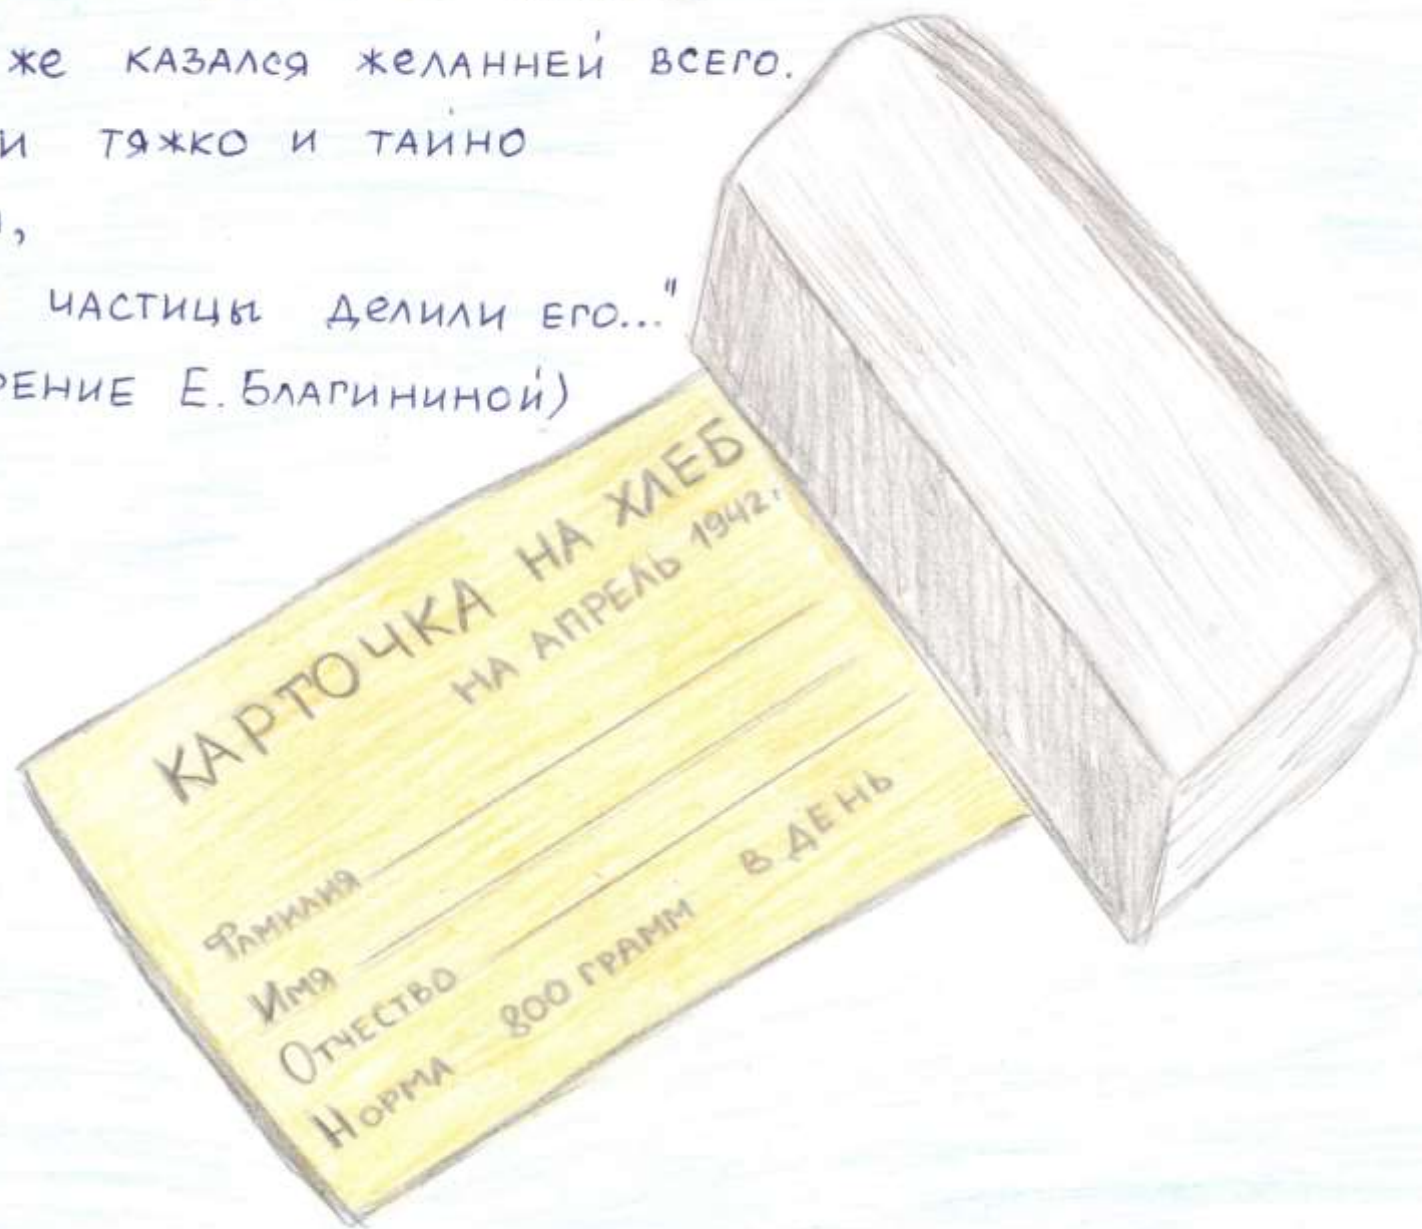 же казался желанней всего.
и тяжко и тайно
,
частицы делили его..."
рение Е. Благининой)
КАРТОЧКА НА ХЛЕБ
НА АПРЕЛЬ 1942г
Фамилия
Имя
Отчество
Норма 800 ГРАММ В ДЕНЬ